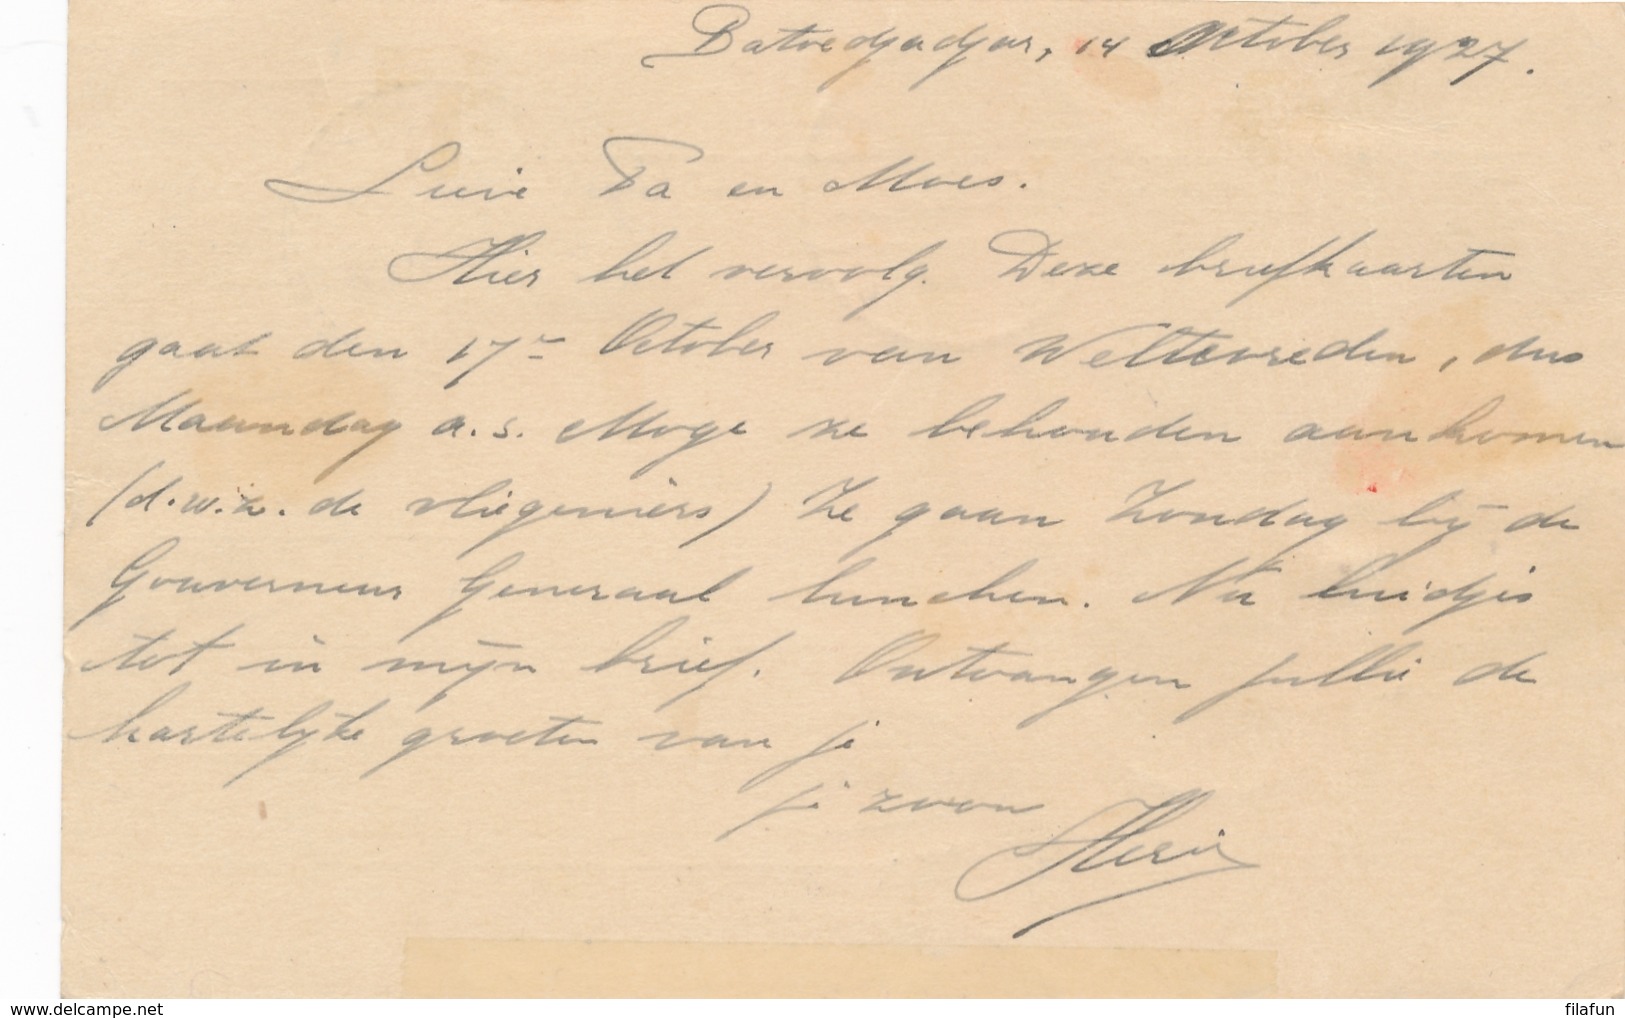 Batoedjadjar, 14 October 1927.
Lieve Pa en Moes.
Hier het vervolg. Deze briefkaarten
gaat den 17en October van Weltevreden, dus
Maandag a.s. Moge ze behouden aankomen
(d.w.z. de vliegeniers) Ze gaan Zondag bij de
Gouverneur Generaal lunchen. Nu luidjes
tot in mijn brief. Ontvangen jullie de
hartelijke groeten van je
je zoon
filafun